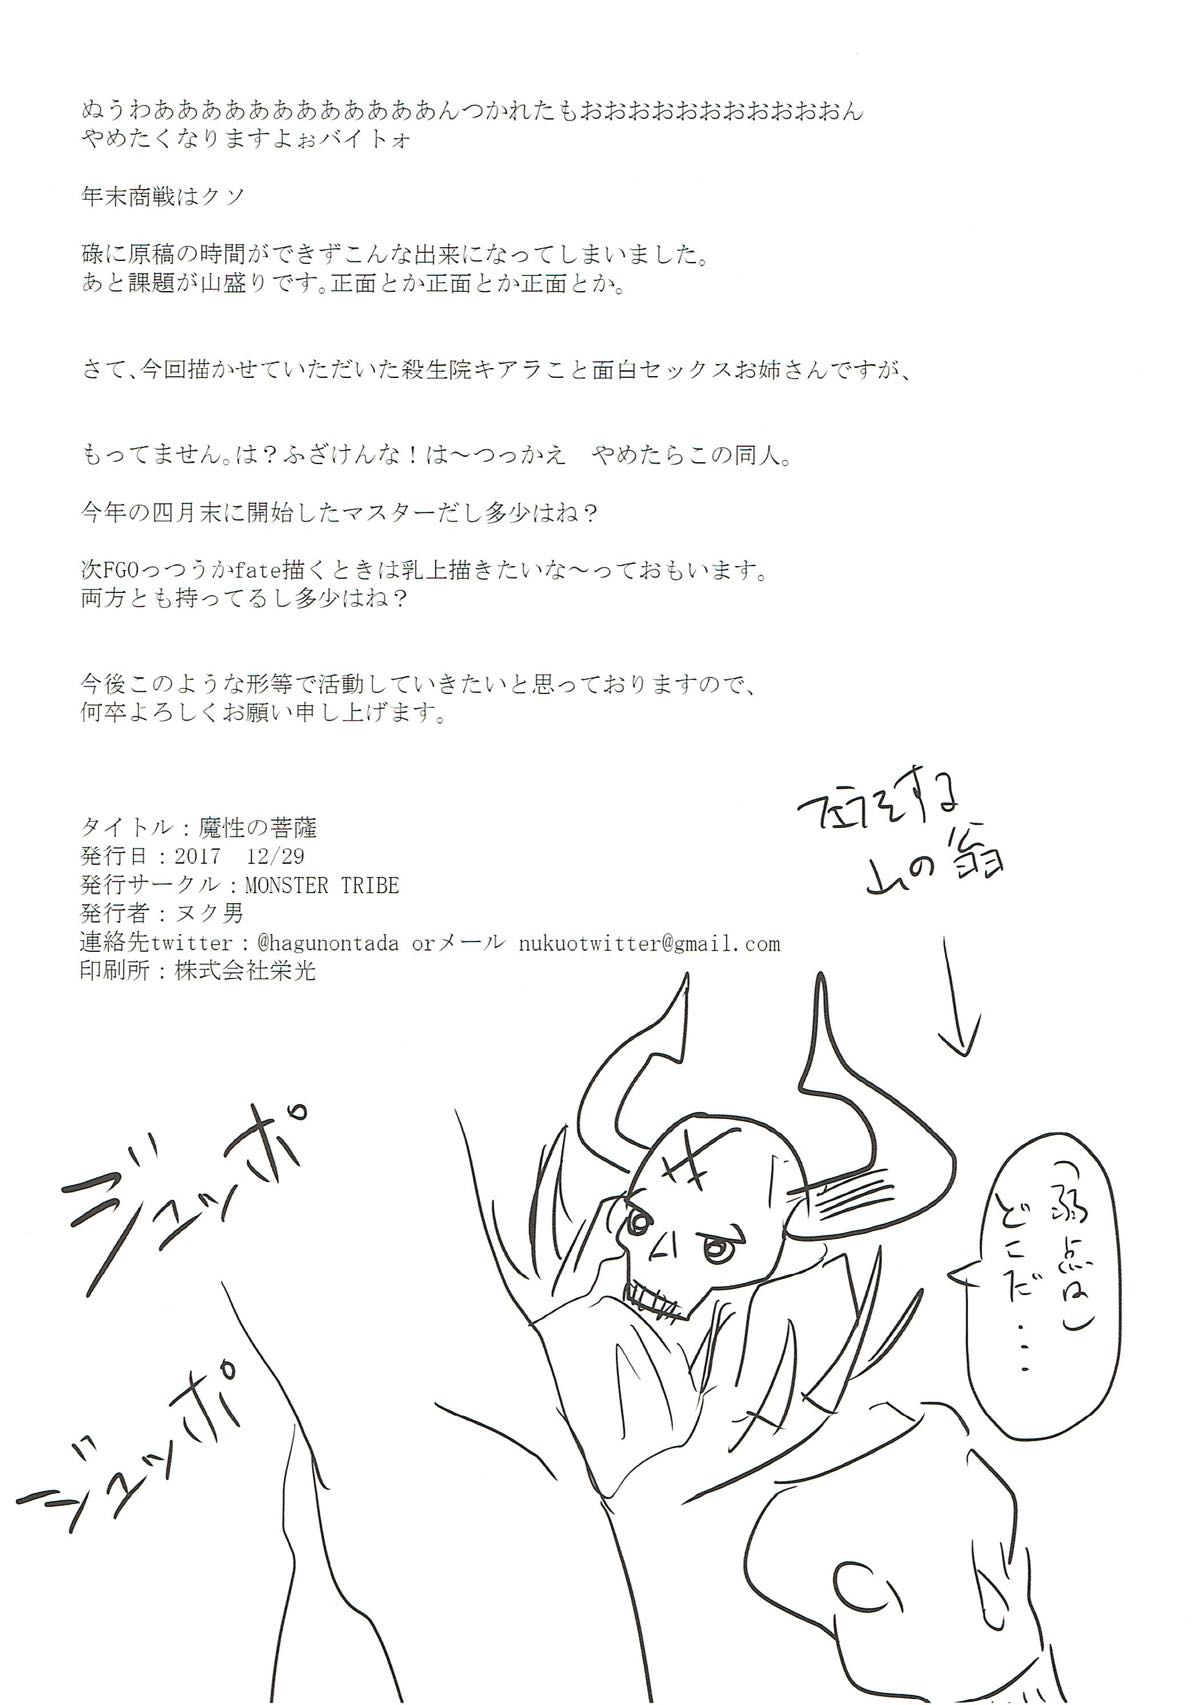 ぬうわあああああああああああああんつかれたもおおおおおおおおおおおおん
やめたくなりますよぉバイトォ
年末商戦はクソ
碌に原稿の時間ができずこんな出来になってしまいました。
あと課題が山盛りです。正面とか正面とか正面とか。
さて、今回描かせていただいた殺生院キアラこと面白セックスお姉さんですが、
もってません。は？ふざけんな！は～つっかえ　やめたらこの同人。
今年の四月末に開始したマスターだし多少はね？
次FGOっつうかfate描くときは乳上描きたいな～っておもいます。
両方とも持ってるし多少はね？
今後このような形等で活動していきたいと思っておりますので、
何卒よろしくお願い申し上げます。
タイトル：魔性の菩薩
発行日：2017　12/29
発行サークル：MONSTER TRIBE
発行者：ヌク男
連絡先twitter：@hagunontada orメール nukuotwitter@gmail.com
印刷所：株式会社栄光
フェラをする
山の翁
ジュッポ
ジュッポ
(弱点は)
どこだ・・・